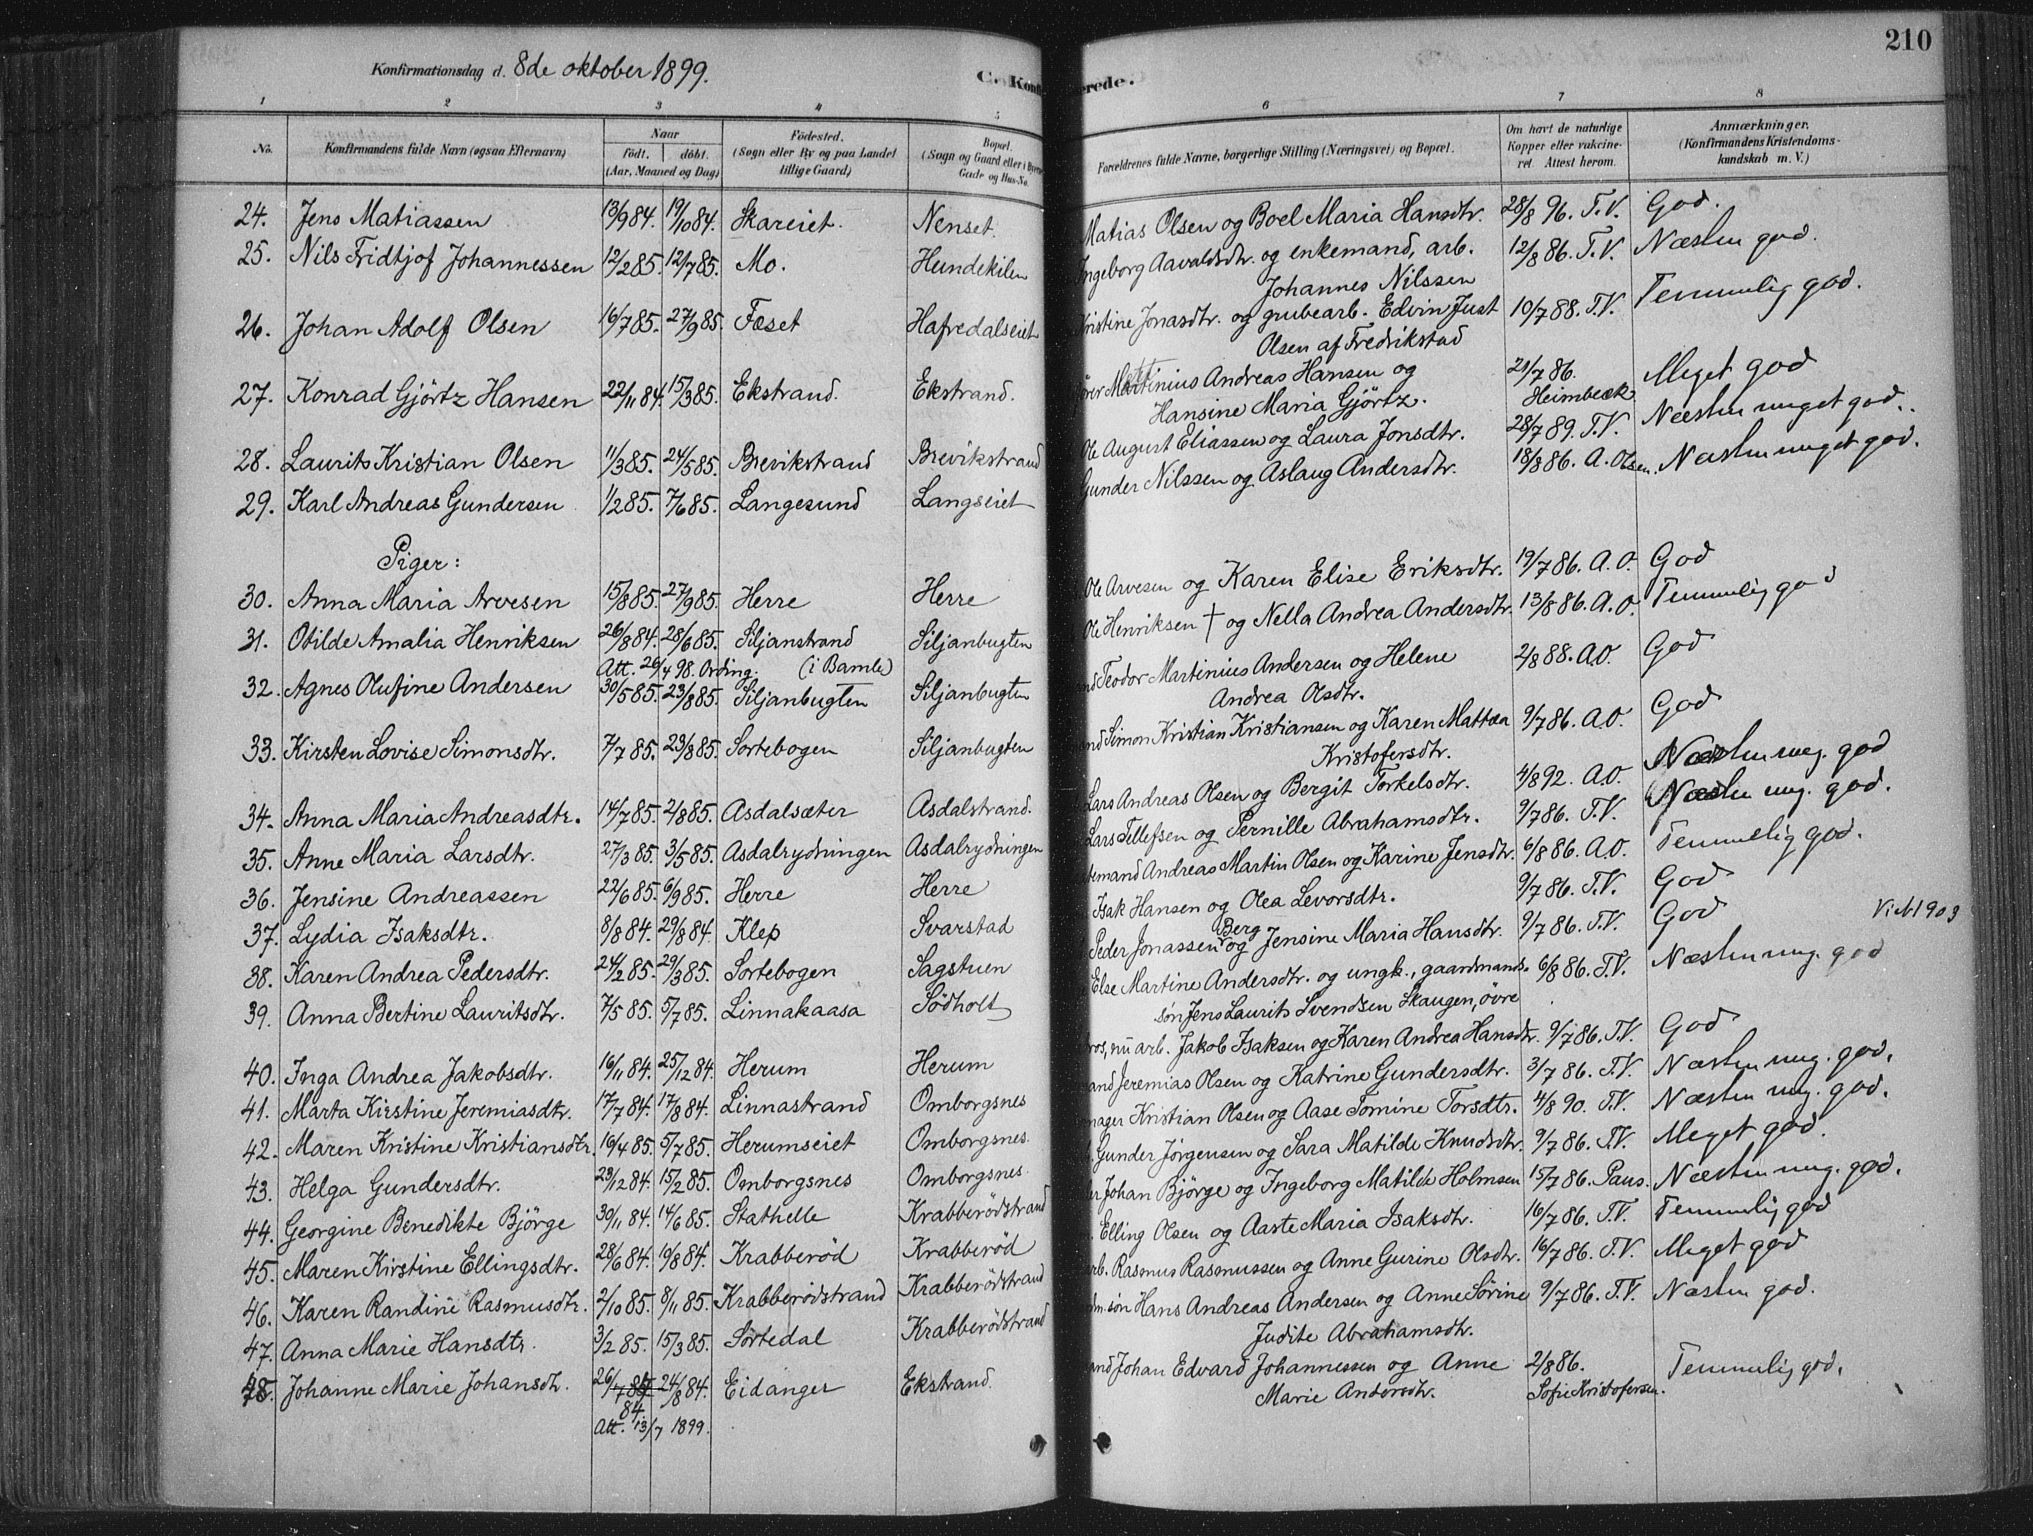 210
Konfirmationsdag d. 8de oktober 1899.
C. Konfi
erede.
1 2 3 4 5 6 7 8
No.
Konfirmandens fulde Navn (ogsaa Efternavn)
Naar
født. døbt.
(Aar, Maaned og Dag)
Fødested.
(Sogn eller By og paa Landet
tillige Gaard)
Bopæl.
(Sogn og Gaard eller i Byerne
Gade og Hus-No.
Forældrenes fulde Navne, borgerlige Stilling (Næringsvei) og Bopæl.
Om havt de naturlige
Kopper eller vakcine-
ret. Attest herom.
Anmærkninger.
(Konfirmandens Kristendoms-
kundskab m. V.)
24. Jens Matiassen 13/9 84. 19/10 84. Skareiet. Nenset. Matias Olsen og Boel Maria Hansdtr. 28/8 96. T.V. God.
25. Nils Fridtjof Johannessen 12/2 85. 12/7 85. Mo. Hundekilen Ingeborg Aavaldsdtr. og enkemand, arb. 12/8 86. T.V. Næsten god.
Johannes Nilssen
26. Johan Adolf Olsen 16/7 85. 27/9 85. Feset Hafredalseiet Kristine Jonasdtr. og grubearb. Edvin Just 10/7 88. T.V. Temmelig god.
Olsen af Fredrikstad
27. Konrad Gjörtz Hansen 22/11 84. 15/3 85. Ekstrand. Ekstrand. Martinius Andreas Hansen og 21/7 86. Meget god
Hansine Maria Gjörtz. Heimbeck
28. Laurits Kristian Olsen 11/3 85. 24/5 85. Brevikstrand Brevikstrand Ole August Eliassen og Laura Jonsdtr. 28/7 89. T.V. Næsten meget god.
29. Karl Andreas Gundersen 1/2 85. 7/6 85. Langesund Langseiet Gunder Nilssen og Aslaug Andersdtr. 18/8 86. A. Olsen. Næsten meget god.
Piger:
30. Anna Maria Arvesen 15/8 85. 27/9 85. Herre Herre Ole Arvesen og Karen Elise Eriksdtr. 19/7 86. A.O. God
31. Otilde Amalia Henriksen 26/8 84. 28/6 85. Siljanstrand Siljanbugten Ole Henriksen † og Nella Andrea Andersdtr. 13/8 86. A.O. Temmelig god
Att. 26/4 98. Ording. (i Bamle)
32. Agnes Olufine Andersen 30/5 85. 23/8 85. Siljanbugten Siljanbugten Teodor Martinius Andersen og Helene 2/8 88. A.O. God
Andrea Olsdtr.
33. Kirsten Lovise Simonsdtr. 7/7 85. 23/8 85. Sortebogen Siljanbugten Simon Kristian Kristiansen og Karen Mattea 9/7 86. A.O. God
Kristofersdtr.
34. Anna Maria Andreasdtr. 14/7 85. 2/8 85. Asdalsæter Asdalstrand. Lars Andreas Olsen og Bergit Torkelsdtr. 4/8 92. A.O. Næsten meg. god
35. Anne Maria Larsdtr. 27/3 85. 3/5 85. Asdalrydningen Asdalrydningen Lars Tellefsen og Pernille Abrahamsdtr. 9/7 86. T.V. Næsten meg. god.
36. Jensine Andreassen 22/6 85. 6/9 85. Herre Herre Andreas Martin Olsen og Karine Jensdtr. 6/8 86. A.O. Temmelig god.
37. Lydia Isaksdtr. 8/8 84. 29/8 84. Klep Svarstad Isak Hansen og Olea Levorsdtr. 9/7 86. T.V. God
38. Karen Andrea Pedersdtr. 24/2 85. 29/3 85. Sortebogen Sagstuen Peder Jonassen Berg og Jensine Maria Hansdtr. 9/7 86. T.V. God
39. Anna Bertine Lauritsdtr. 7/5 85. 5/7 85. Linnakaasa Södholt Else Martine Andersdtr. og ungk., gaardmands- 6/8 86. T.V. Næsten meg. god
søn Jens Laurits Svendsen Skaugen, övre
40. Inga Andrea Jakobsdtr. 16/11 84. 25/12 84. Herum Herum nu arb. Jakob Isaksen og Karen Andrea Hansdtr. 9/7 86. T.V. God
41. Marta Kirstine Jeremiasdtr. 17/7 84. 17/8 84. Linnastrand Omborgsnes Jeremias Olsen og Katrine Gundersdtr. 3/7 86. T.V. Næsten meg. god.
42. Maren Kristine Kristiansdtr. 16/4 85. 5/7 85. Herumseiet Omborgsnes. Kristian Olsen og Aase Tomine Torsdtr. 4/8 90. T.V. Næsten meg. god.
43. Helga Gundersdtr. 23/12 84. 15/2 85. Omborgsnes Omborgsnes. Gunder Jørgensen og Sara Matilde Knudsdtr. 9/7 86. T.V. Meget god.
44. Georgine Benedikte Björge 30/11 84. 14/6 85. Stathelle Krabberödstrand Johan Björge og Ingeborg Matilde Holmsen 15/7 86. Paus. Næsten meg. god.
45. Maren Kirstine Ellingsdtr. 28/6 84. 19/8 84. Krabberöd Krabberöd Elling Olsen og Aaste Maria Isaksdtr. 16/7 86. T.V. Temmelig god
46. Karen Randine Rasmusdtr. 2/10 85. 8/11 85. Krabberödstrand Krabberödstrand Rasmus Rasmussen og Anne Gurine Olsdtr. 16/7 86. T.V. Meget god
47. Anna Marie Hansdtr. 3/2 85. 15/3 85. Sortedal Krabberödstrand søn Hans Andreas Andersen og Anne Sörine 9/7 86. T.V. Næsten god.
Judite Abrahamsdtr.
48. Johanne Marie Johansdtr. 26/7 85 24/8 84. Eidanger Ekstrand. Johan Edvard Johannessen og Anne 2/8 86. Temmelig god.
84. Marie Andersdtr. Sofie Kristofersen.
Att. 13/7 1899.